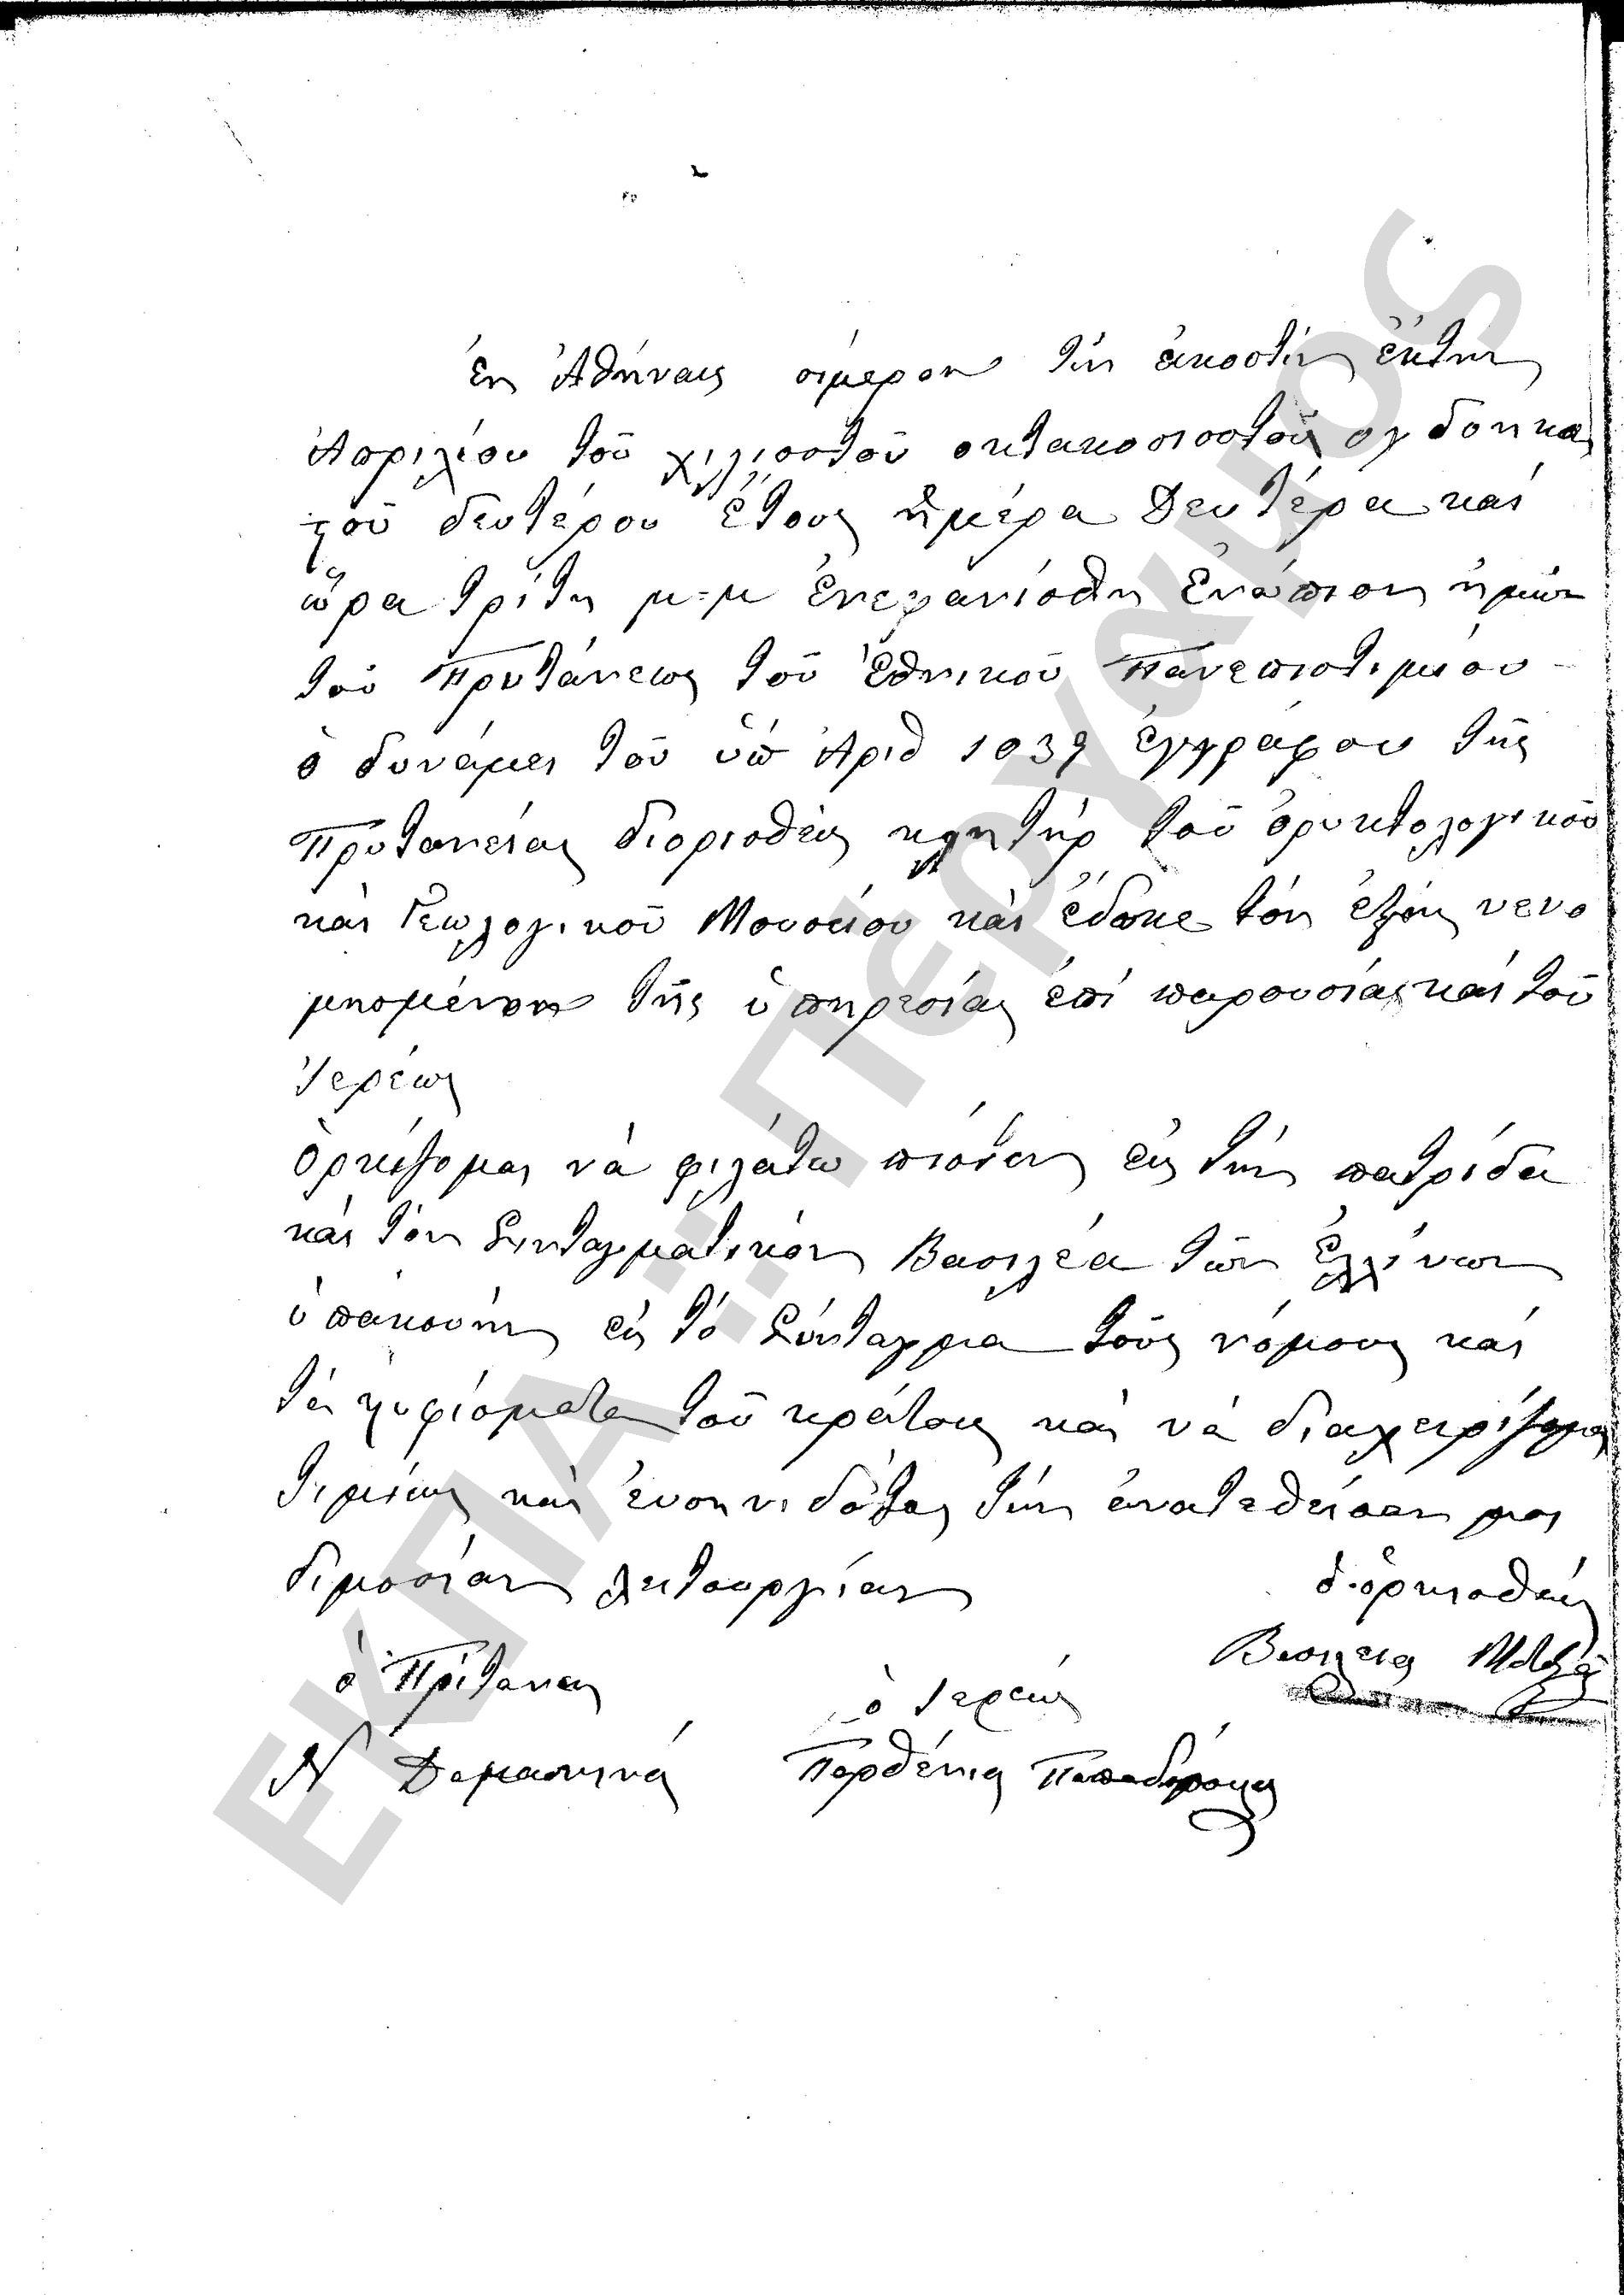 ἐν Ἀθήναις σίμερον τὴν εἰκοστὴν ἕκτην
Ἀπριλίου τοῦ χιλιοστοῦ οκτακοσιοστοῦ ογδοηκο
τοῦ δευτέρου ἔτους ἡμέρα Δευτέρα καὶ
ὥρα τρίτη μ=μ ἐνεφανίσθη ἐνώπιον ἡμῶν
τοῦ Πρυτάνεως τοῦ Ἐθνικοῦ Πανεπιστιμίου
ὁ δυνάμει τοῦ ὑπ Ἀριθ 1039 ἐγγράφου τῆς
Πρυτανείας διορισθείς κλητήρ τοῦ ὀρυκτολογικοῦ
καὶ Γεωλογικοῦ Μουσείου καὶ ἔδοκε τόν ἑξῆς νενο
μησμένον τῆς ὑπηρεσίας ἐπί παρουσίας καὶ τοῦ
Ἱερέως
Ὁρκίζομαι νά φιλάτω πίστιν εἰς τὴν πατρίδα
καὶ τόν Σινταγματικόν Βασιλέα τῶν Ἑλλίνων
ὑπακουήν εἰς τό Σύνταγμα τούς νόμους καὶ
τά ψυφίσματα τοῦ κράτους καὶ νά διαχειρίζομαι
τιμίως καὶ ἐυσηνιδότος τὴν ἀνατεθείσαν μοι
διμοσίαν λειτουργίαν διορκισθείς
ὁ Πρίτανεις ὁ Ἱερεύς Βασίλειος
Ν Δαμασκινός Παρθένιος
ΕΚΠΑ::Πέργαμος